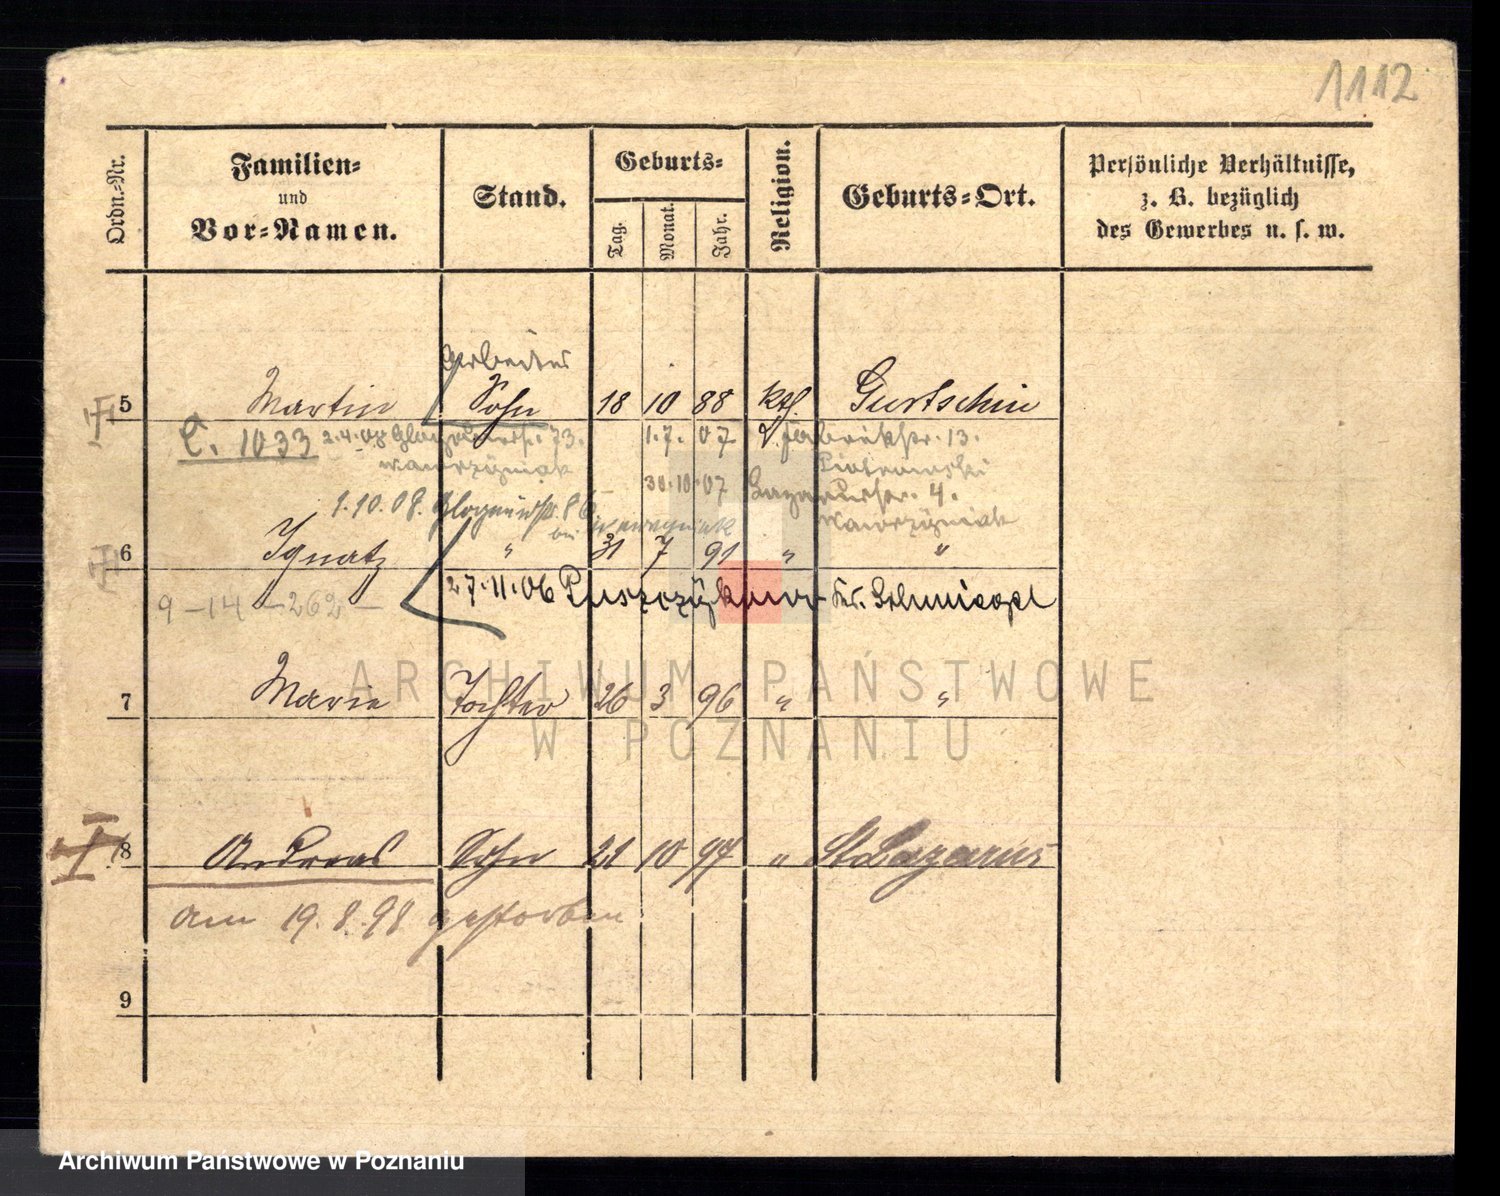 1112
Ordn.-Nr.
Familien-
und
Vor-Namen.
Stand.
Geburts-
Tag.
Monat.
Jahr.
Religion.
Geburts-Ort.
Persönliche Verhältnisse,
z. B. bezüglich
des Gewerbes u. s. w.
Arbeiter
5 Martin Sohn 18 10 88 kth. Gurtschin
C. 1033 2.4.08 73. 1.7.07 Fabrikstr. 13.
Wawrzyniak Piotrowski
30.10.07 Lazarusstr. 4.
1.10.08. Glogauerstr. 86 Wawrzyniak
bei Wawrzyniak
6 Ignatz " 31 7 91 " "
9-14-262- 27.11.06 Puszczykowo Kr. Schmiegel
7 Marie Tochter 26 3 96 " "
8 Andreas Sohn 21 10 97 " St Lazarus
am 19.8.98 gestorben
9
ARCHIWUM PAŃSTWOWE
W POZNANIU
Archiwum Państwowe w Poznaniu